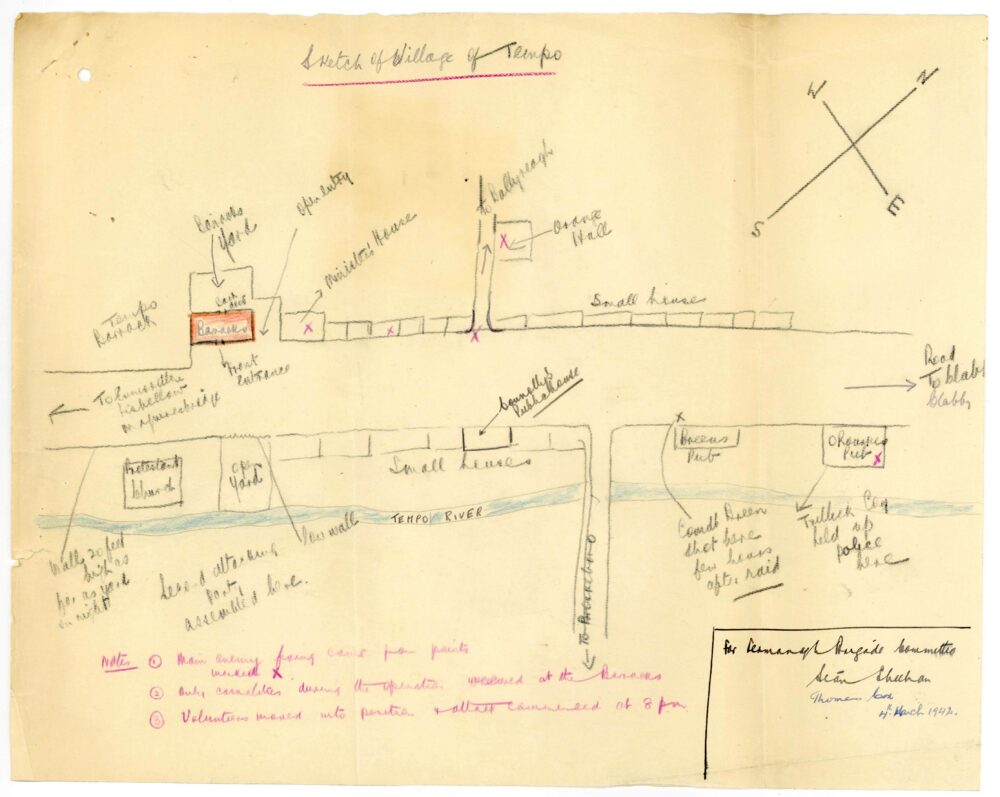 Sketch of Village of Tempo
W
N
S
E
Barracks
Yard
Open entry
Minister's House
To Ballyreagh
Orange
Hall
Small houses
Tempo
Barrack
Back
Barracks
Front
entrance
To
Lisbellaw
or
Road
To Clabby
Clabby
Connolly's
Publichouse
Protestant
Church
Open
Yard
Small houses
Breens
Pub
O Rourkes
Pub
TEMPO RIVER
Wall 20 feet
high as
far as yard
on right
Second attacking
party
assembled here.
Low wall
To Brookeboro
Comdt Breen
shot here
few hours
after raid
Trillick Coy
held up
police
here
Notes
① Main enemy firing came from points
marked X
② Only casualties during the operation occurred at the Barracks
③ Volunteers moved into position & attack commenced at 8 pm
For Fermanagh Brigade Committee
Seán Sheehan
Thomas Cox
4th March 1942.